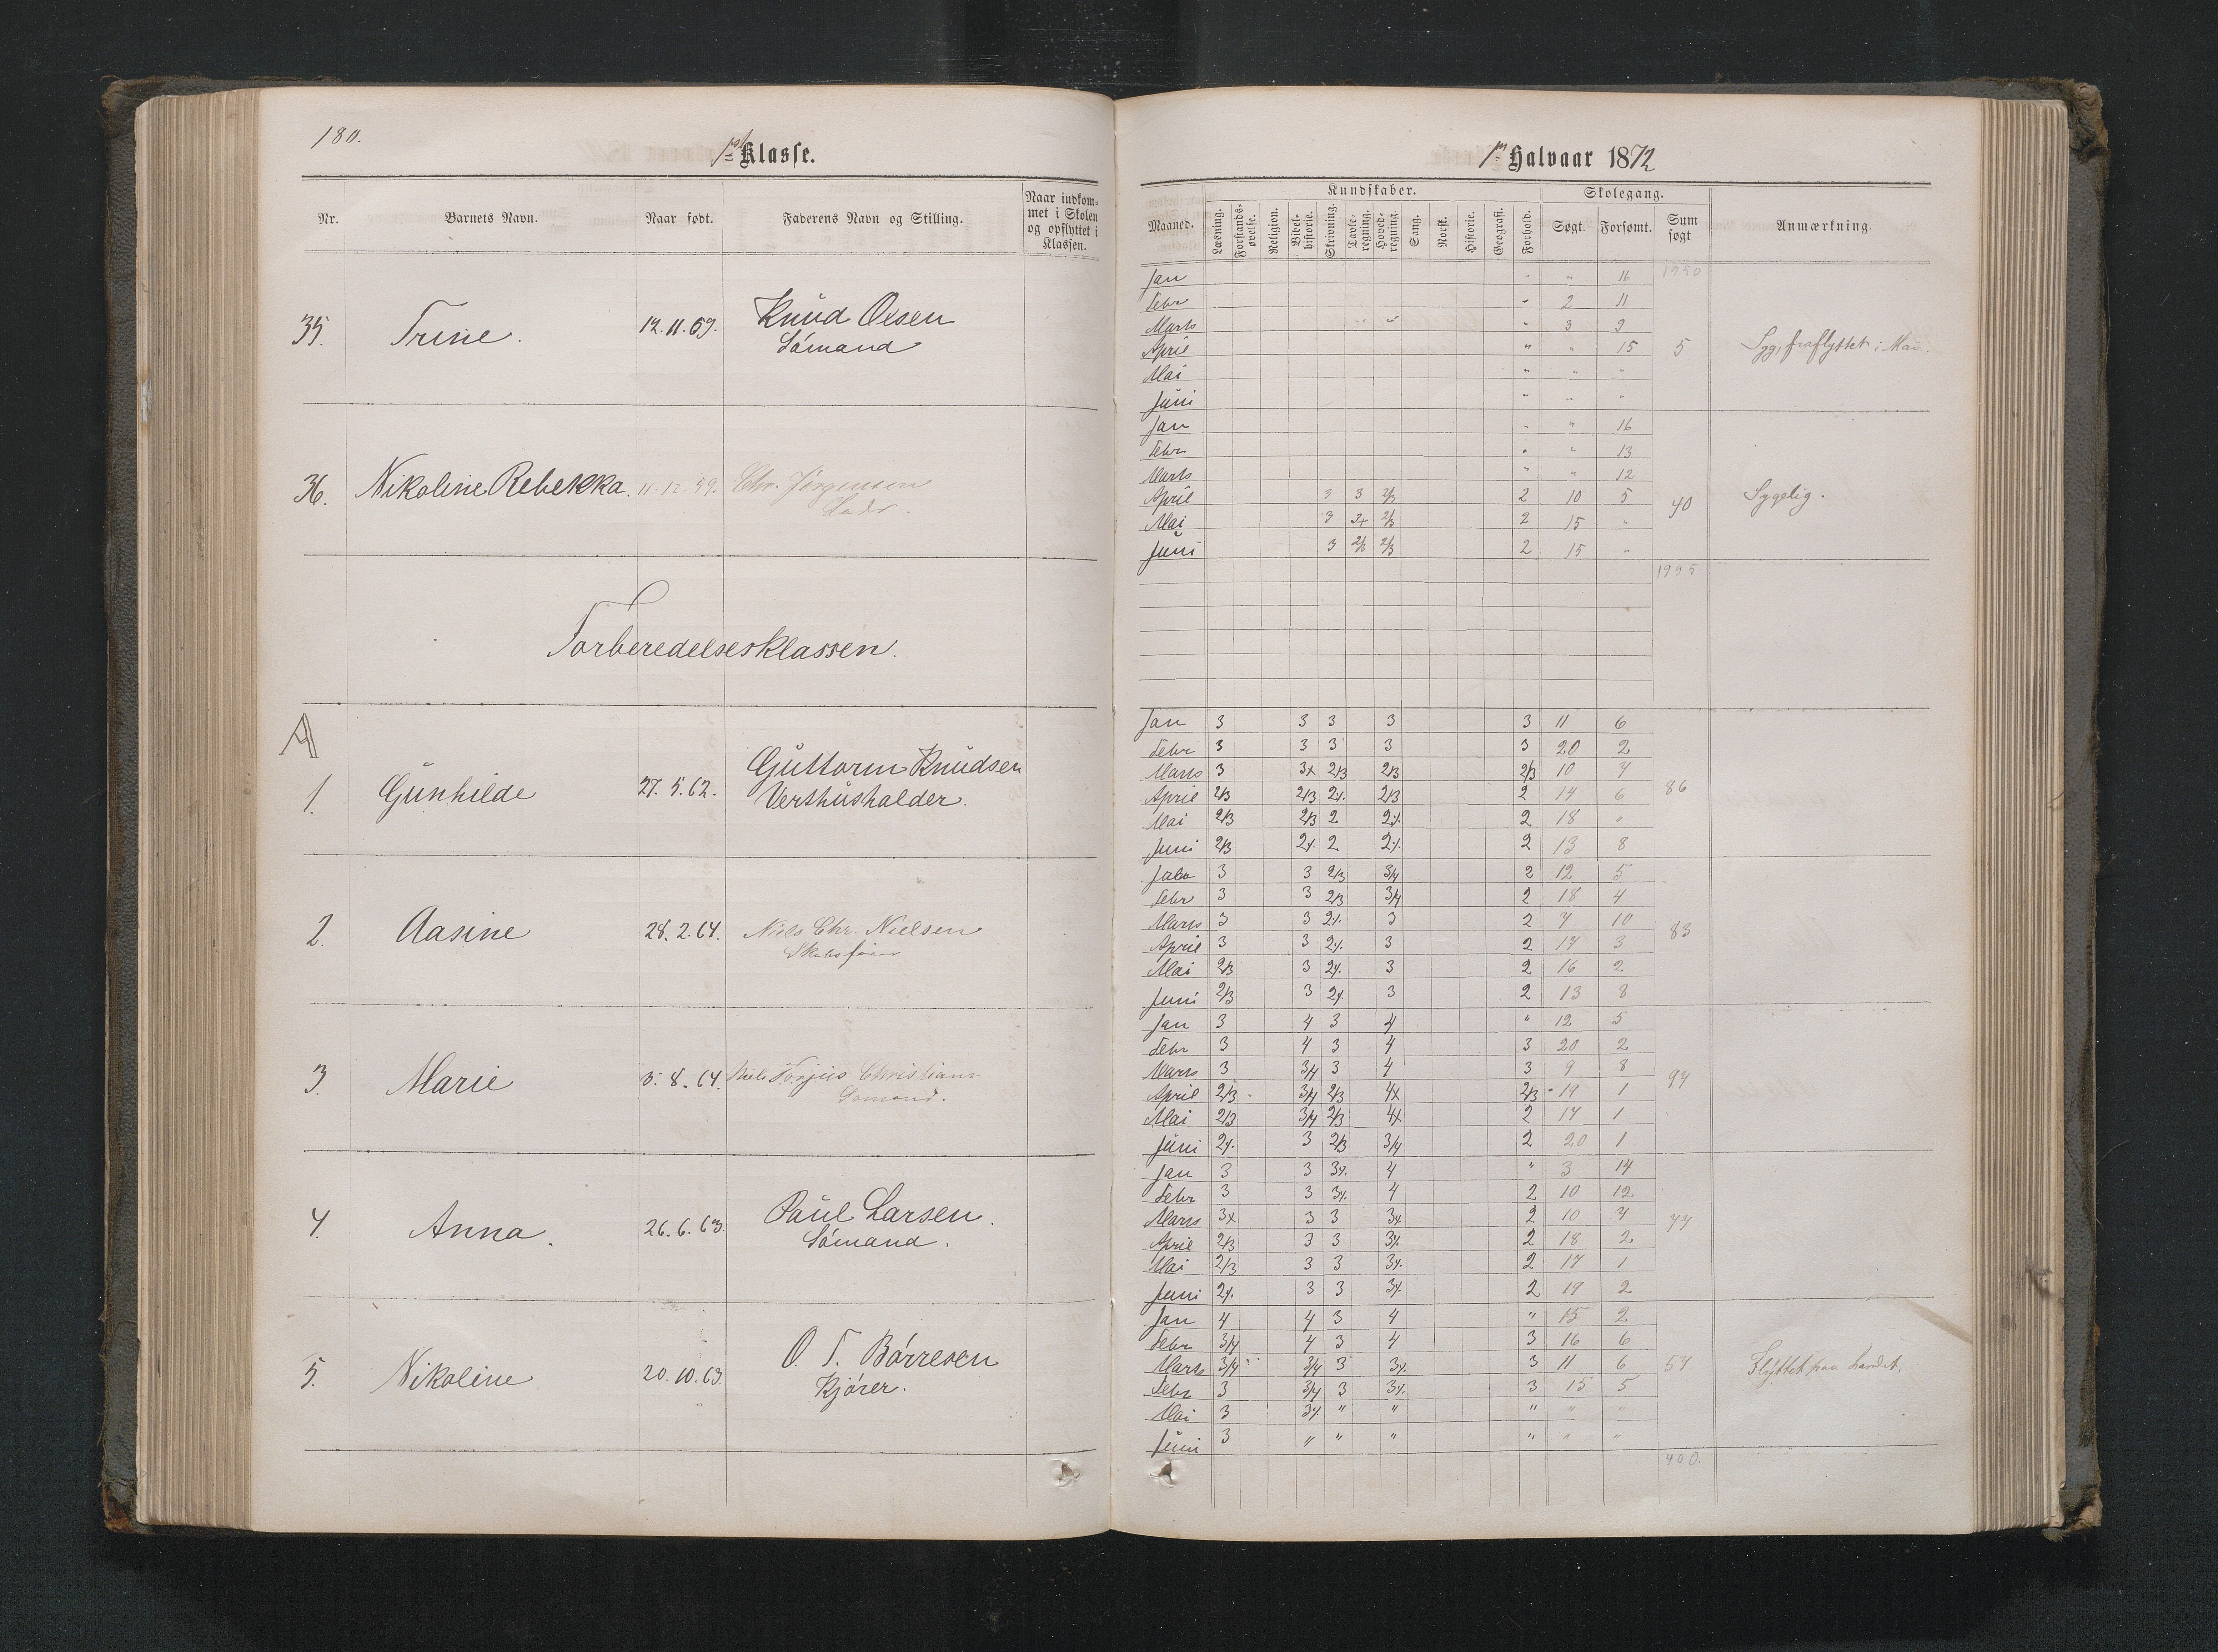 180.
1ste Klasse.
Nr. Barnets Navn. Naar født. Faderens Navn og Stilling. Naar indkommet i Skolen og opflyttet i Klassen.
35. Trine. 12.11.59. Knud Olsen
Sømand
36. Nikoline Rebekka. 11.12.59. Chr. Jørgensen
Forberedelsesklassen.
A
1. Gunhilde 27.5.62. Guttorm Knudsen
Vertshusholder.
2. Aasine 28.2.64. Niels Chr. Nielsen
Skibsfører
3. Marie 5.8.64. Niels Torjus Christians
Sømand.
4. Anna. 26.6.63. Paul Larsen.
Sømand.
5. Nikoline 20.10.63. O. T. Børresen
Kjører.
1ste Halvaar 1872
Kundskaber. Skolegang.
Maaned. Læsning. Forstandsøvelse. Religion. Bibelhistorie. Skrivning. Tavleregning. Hovedregning. Sang. Norsk. Historie. Geografi. Forhold. Søgt. Forsømt. Sum søgt Anmærkning.
Jan " " 16 1950
Febr " 2 11
Marts " " " 3 2
April " " 15 5 Syg, fraflyttet i Mai.
Mai " " "
Juni " " "
Jan " " 16
Febr " " 13
Marts " " 12
April 3 3 2/3 2 10 5 40 Sygelig.
Mai 3 3+ 2/3 2 15 "
Juni 3 2/3 2/3 2 15 "
1995
Jan 3 3 3 3 3 11 6
Febr 3 3 3 3 3 20 2
Marts 3 3x 2/3 2/3 2/3 10 7
April 2/3 2/3 2x. 2/3 2 14 6 86
Mai 2/3 2/3 2 2x. 2 18 "
Juni 2/3 2x. 2 2x. 2 13 8
Jan 3 3 2/3 3/4 2 12 5
Febr 3 3 2/3 3/4 2 18 4
Marts 3 3 2x. 3 2 7 10
April 3 3 2x. 3 2 17 3 83
Mai 2/3 3 2x. 3 2 16 2
Juni 2/3 3 2x. 3 2 13 8
Jan 3 4 3 4 " 12 5
Febr 3 4 3 4 3 20 2
Marts 3 3/4 3 4 3 9 8
April 2/3 3/4 2/3 4x 2/3 19 1 97
Mai 2/3 3/4 2/3 4x 2 17 1
Juni 2x. 3 2/3 3/4 2 20 1
Jan 3 3 3x. 4 " 3 14
Febr 3 3 3x. 4 2 10 12
Marts 3x 3 3 3x 2 10 7 77
April 2/3 3 3 3x. 2 18 2
Mai 2/3 3 3 3x. 2 17 1
Juni 2x. 3 3 3x. 2 19 2
Jan 4 4 3 4 " 15 2
Febr 3/4 4 3 4 3 16 6
Marts 3/4 3/4 3 3x. 3 11 6 57 Flyttet paa Landet.
Febr 3 3/4 3 3x. 3 15 5
Mai 3 3x " " " " "
Juni 3 " " " " " "
400.